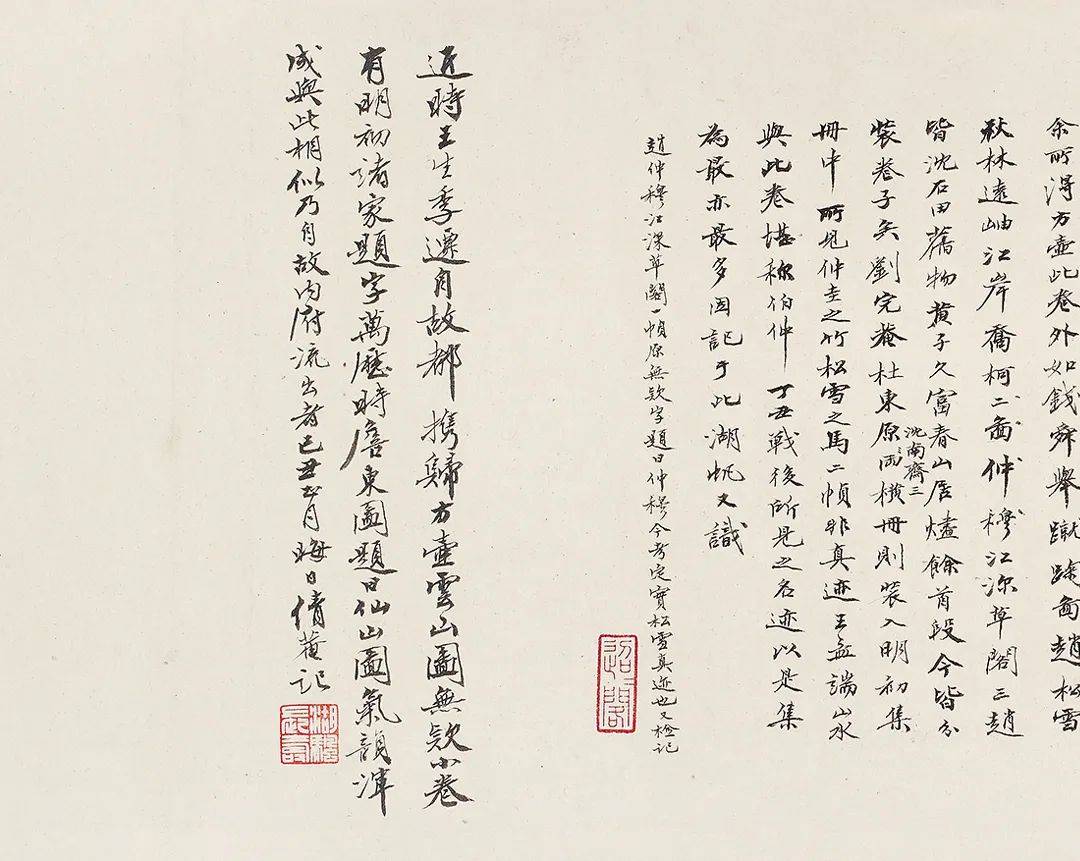 余所得方壺此卷外如錢舜舉蹴踘圖趙松雪
秋林遠岫江岸喬柯二圖仲穆江深草閣三趙
皆沈石田舊物黃子久富春山居燼餘首段今皆分
裝卷子矣劉完菴杜東原沈南齋三兩橫冊則裝入明初集
冊中所見仲圭之竹松雪之馬二幀非真迹王孟端山水
與此卷堪稱伯仲丁丑戰後所見之名迹以是集
為最亦最多因記于此湖帆又識
趙仲穆江深草閣一幀原無款字題曰仲穆今考定實松雪真迹也又檢記
近時王生季遷自故都攜歸方壺雲山圖無款小卷
有明初諸家題字萬曆時詹東圖題曰仙山圖氣韻渾
成與此相似乃自故內府流出者己丑正月晦日倩菴記
迢閣
湖颿長壽